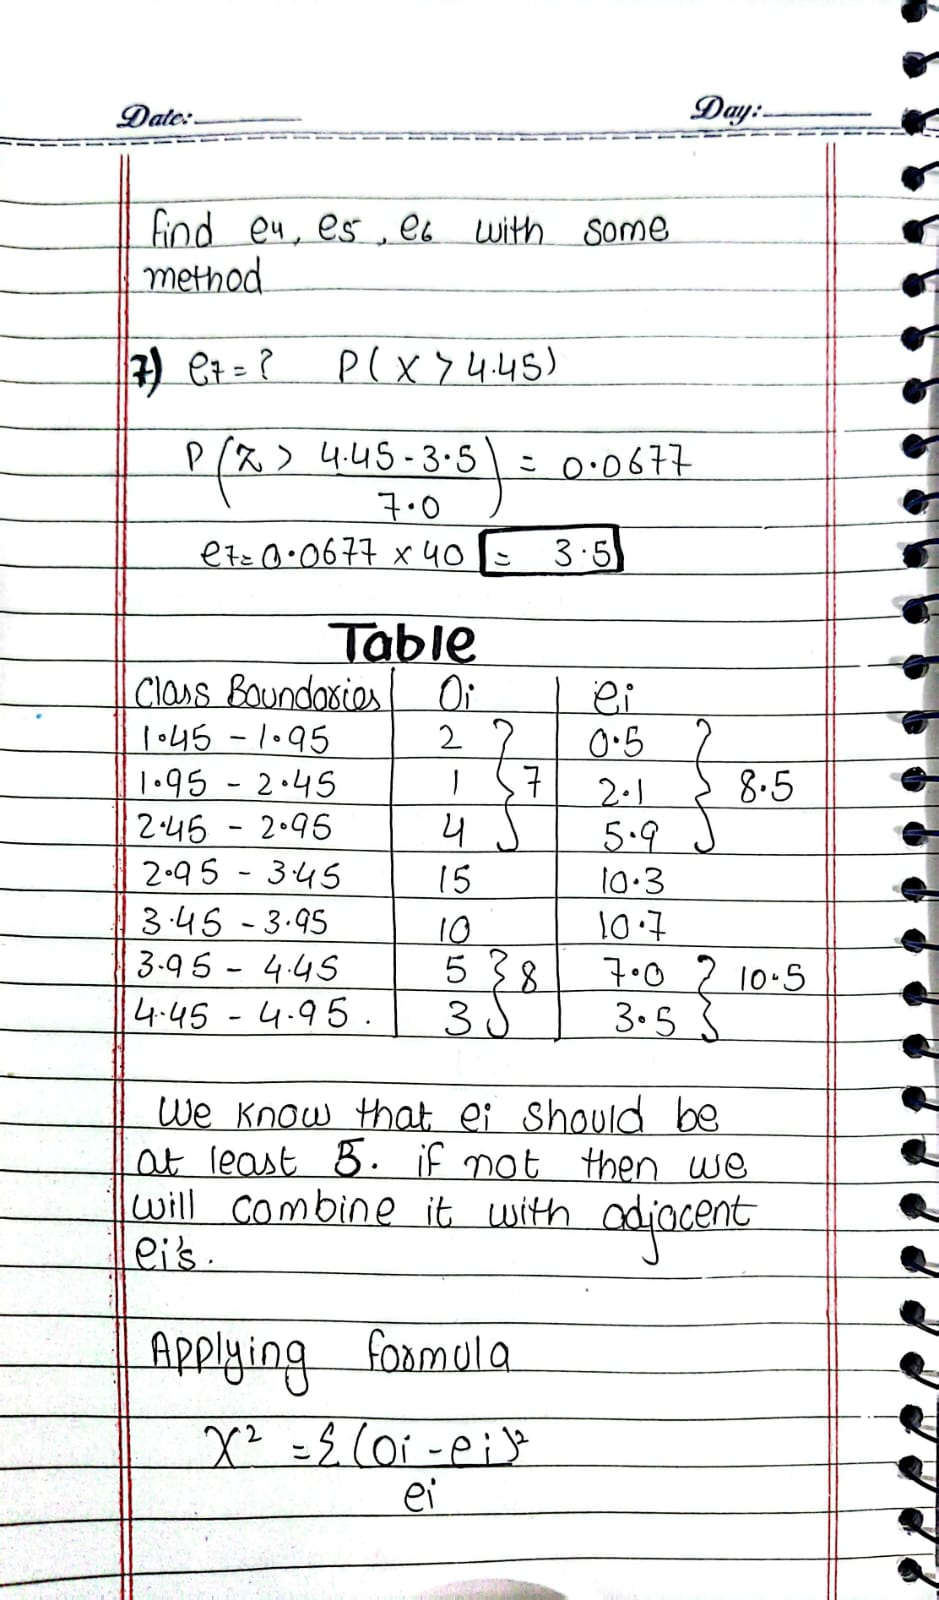 Date: Day:
find e4, e5, e6 with some
method
7) e7 = ? P(X > 4.45)
P(Z > 4.45 - 3.5 / 7.0) = 0.0677
e7 = 0.0677 × 40 = 3.5
Table
Class Boundaries Oi ei
1.45 - 1.95 2 0.5
1.95 - 2.45 1 } 7 2.1 } 8.5
2.45 - 2.95 4 5.9
2.95 - 3.45 15 10.3
3.45 - 3.95 10 10.7
3.95 - 4.45 5 } 8 7.0 } 10.5
4.45 - 4.95. 3 3.5
We know that ei should be
at least 5. if not then we
will combine it with adjacent
ei's.
Applying formula
X² = Σ(Oi - ei)²
ei